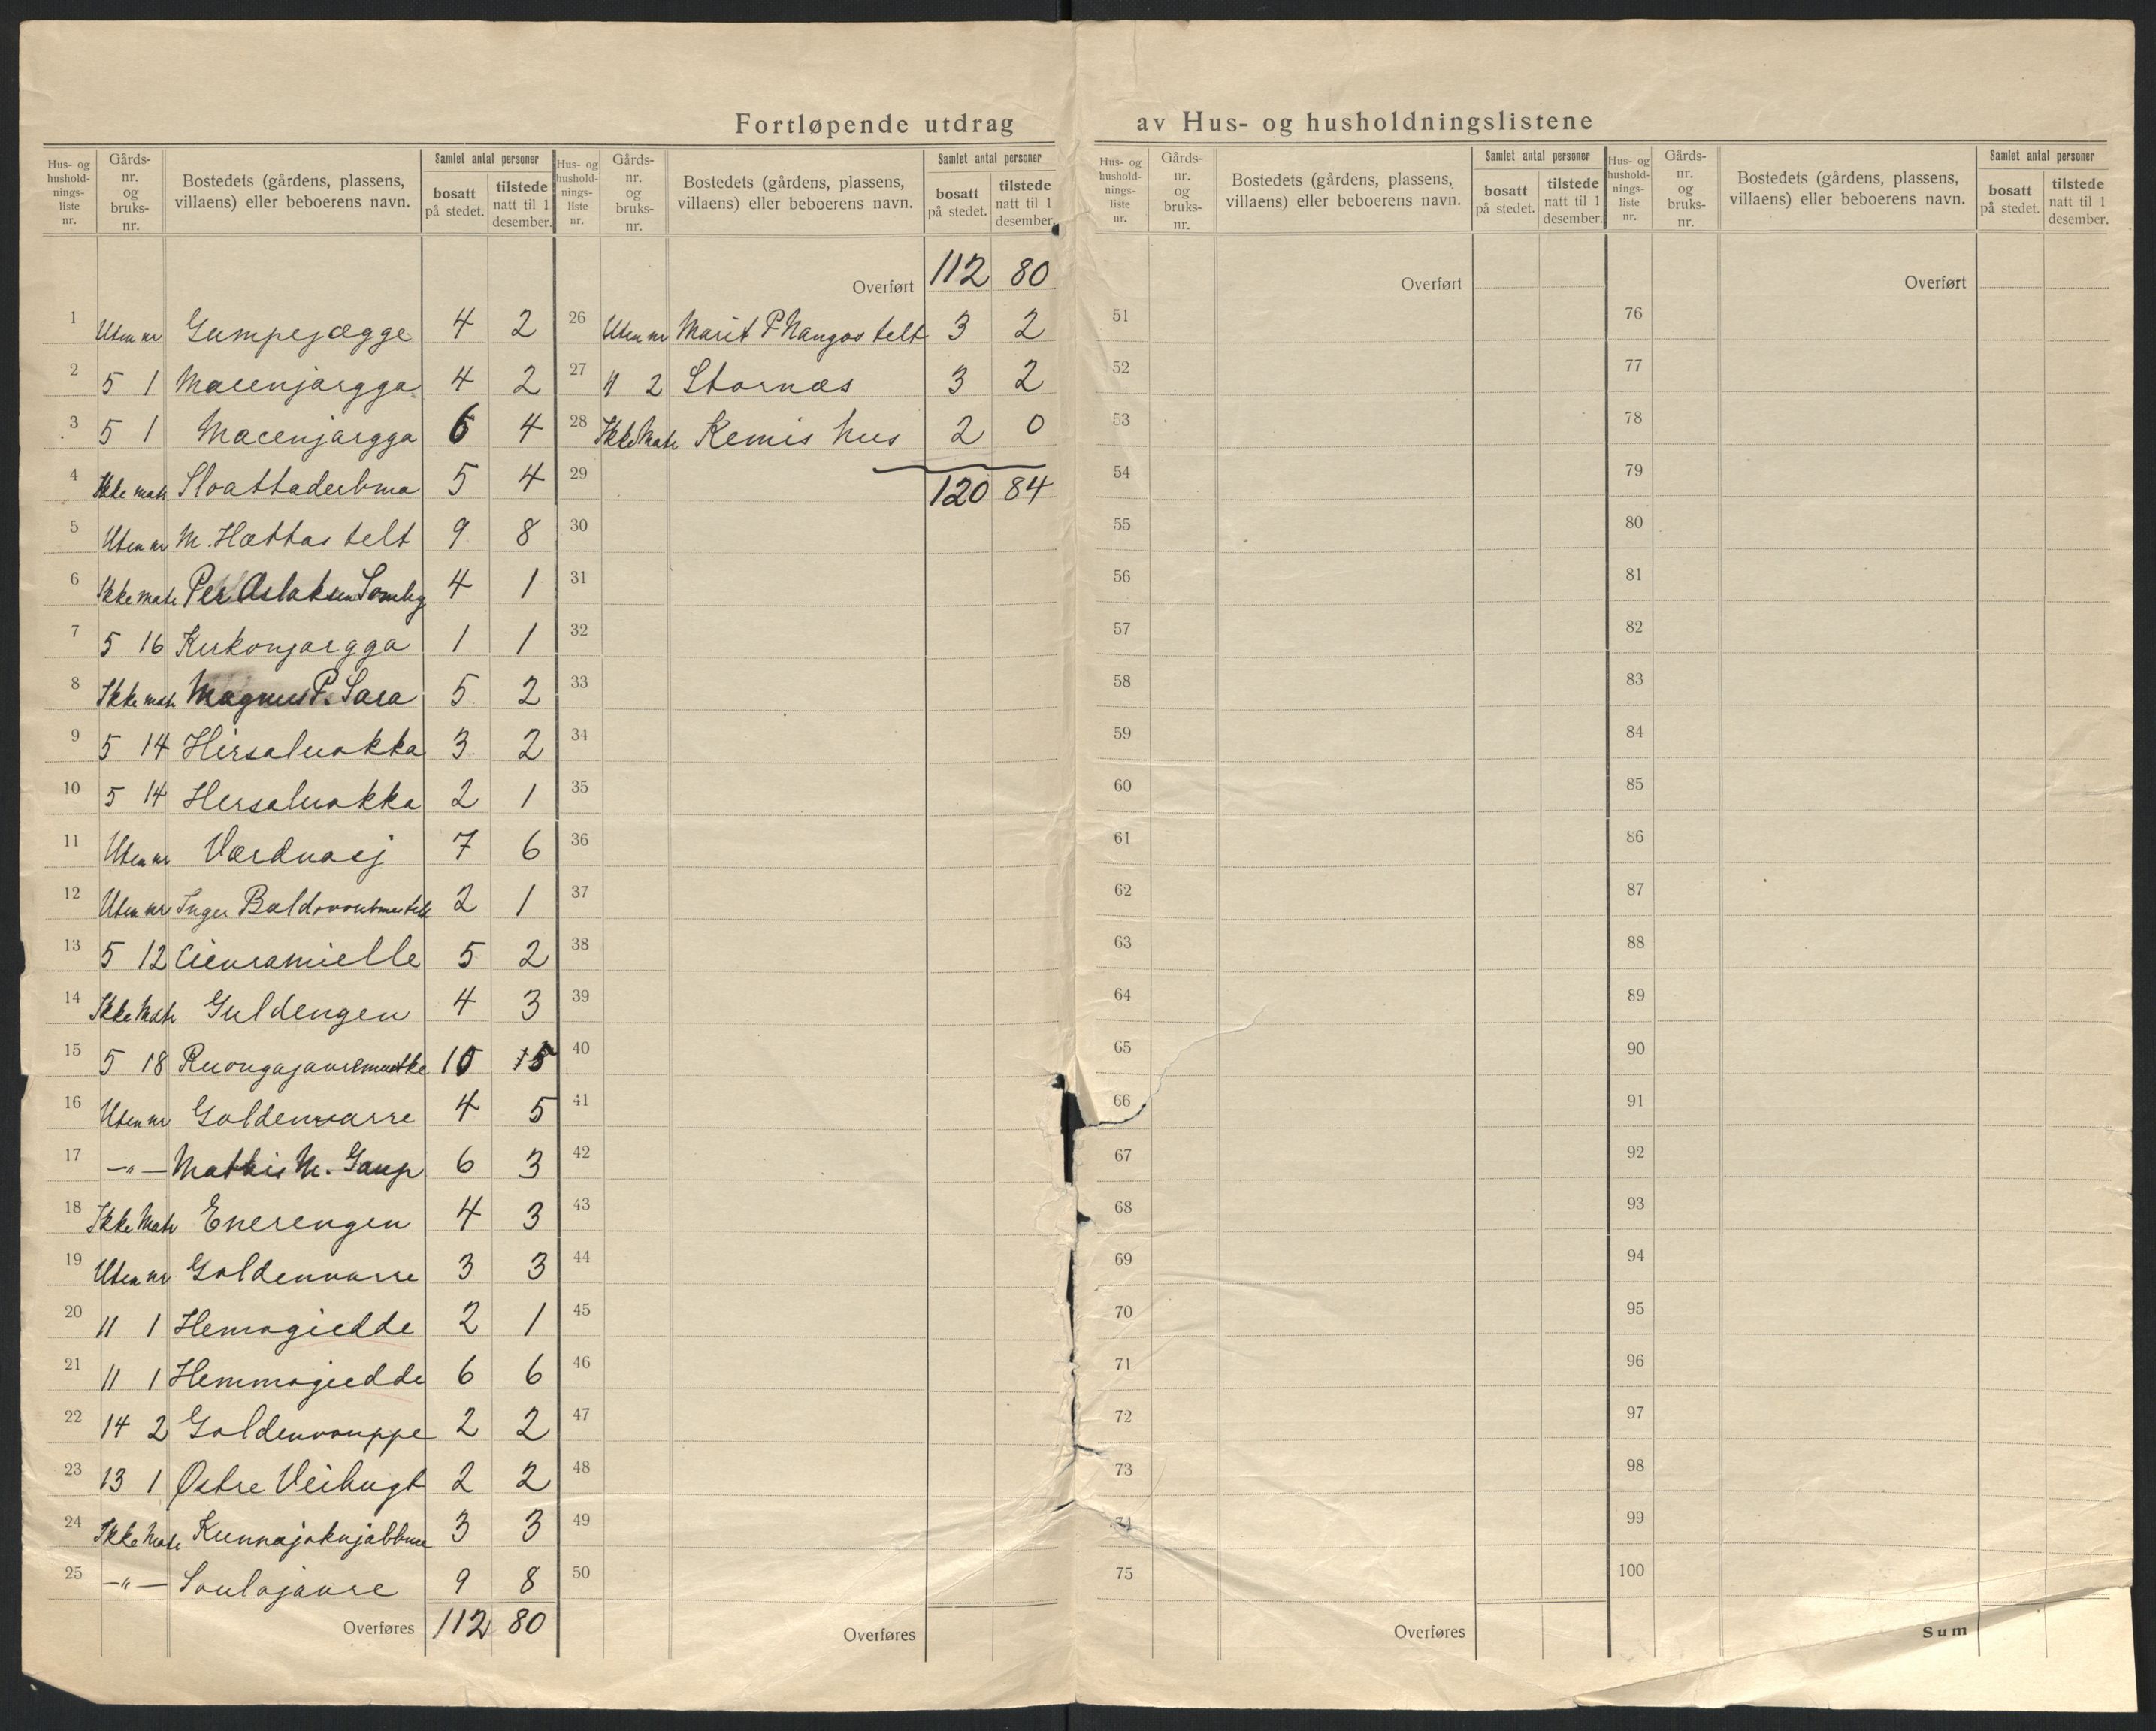 Fortløpende utdrag av Hus- og husholdningslistene
Hus- og hushold-nings-liste nr. Gårds-nr. og bruks-nr. Bostedets (gårdens, plassens, villaens) eller beboerens navn. Samlet antal personer bosatt på stedet. tilstede natt til 1 desember.
1 Uten nr Gumpejægge 4 2
2 5 1 Macenjargga 4 2
3 5 1 Macenjargga 6 4
4 Ikke matr. Sloattaderbma 5 4
5 Uten nr M. Hættas telt 9 8
6 Ikke matr Per Aslaksen Somby 4 1
7 5 16 Kukonjargga 1 1
8 Ikke matr Magnus P. Sara 5 2
9 5 14 Hirsaluokka 3 2
10 5 14 Hirsaluokka 2 1
11 Uten nr Værdnasj 7 6
12 Uten nr Inger 2 1
13 5 12 Cievramielle 5 2
14 Ikke Matr Guldengen 4 3
15 5 18 10 5
16 Uten nr Goldenvarre 4 5
17 —"— Mathis M. Gaup 6 3
18 Ikke Matr Enerengen 4 3
19 Uten nr Goldenvarre 3 3
20 11 1 Hemogiedde 2 1
21 11 1 Hemmogiedde 6 6
22 14 2 Goldenvouppe 2 2
23 13 1 Østre Veibugt 2 2
24 Ikke Matr 3 3
25 —"— Soulojavre 9 8
Overføres 112 80
Hus- og hushold-nings-liste nr. Gårds-nr. og bruks-nr. Bostedets (gårdens, plassens, villaens) eller beboerens navn. Samlet antal personer bosatt på stedet. tilstede natt til 1 desember.
Overført 112 80
26 Uten nr Marit P Nangos telt 3 2
27 11 2 Stornæs 3 2
28 Ikke Matr Kemis hus 2 0
29 120 84
30
31
32
33
34
35
36
37
38
39
40
41
42
43
44
45
46
47
48
49
50
Overføres
Hus- og hushold-nings-liste nr. Gårds-nr. og bruks-nr. Bostedets (gårdens, plassens, villaens) eller beboerens navn. Samlet antal personer bosatt på stedet. tilstede natt til 1 desember.
Overført
51
52
53
54
55
56
57
58
59
60
61
62
63
64
65
66
67
68
69
70
71
72
73
74
75
Overføres
Hus- og hushold-nings-liste nr. Gårds-nr. og bruks-nr. Bostedets (gårdens, plassens, villaens) eller beboerens navn. Samlet antal personer bosatt på stedet. tilstede natt til 1 desember.
Overført
76
77
78
79
80
81
82
83
84
85
86
87
88
89
90
91
92
93
94
95
96
97
98
99
100
Sum